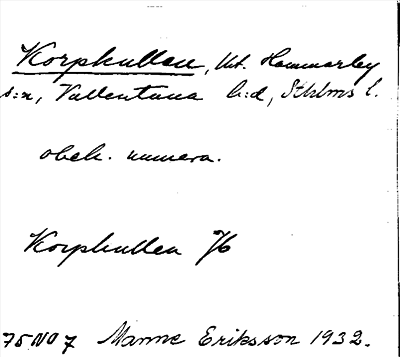 Korpkullen, Ut. Hammarby
s:n, Vallentuna h:d, Sthlms l.
obek. numera.
Korpkullen 7/6
75 NO 7 Manne Eriksson 1932.